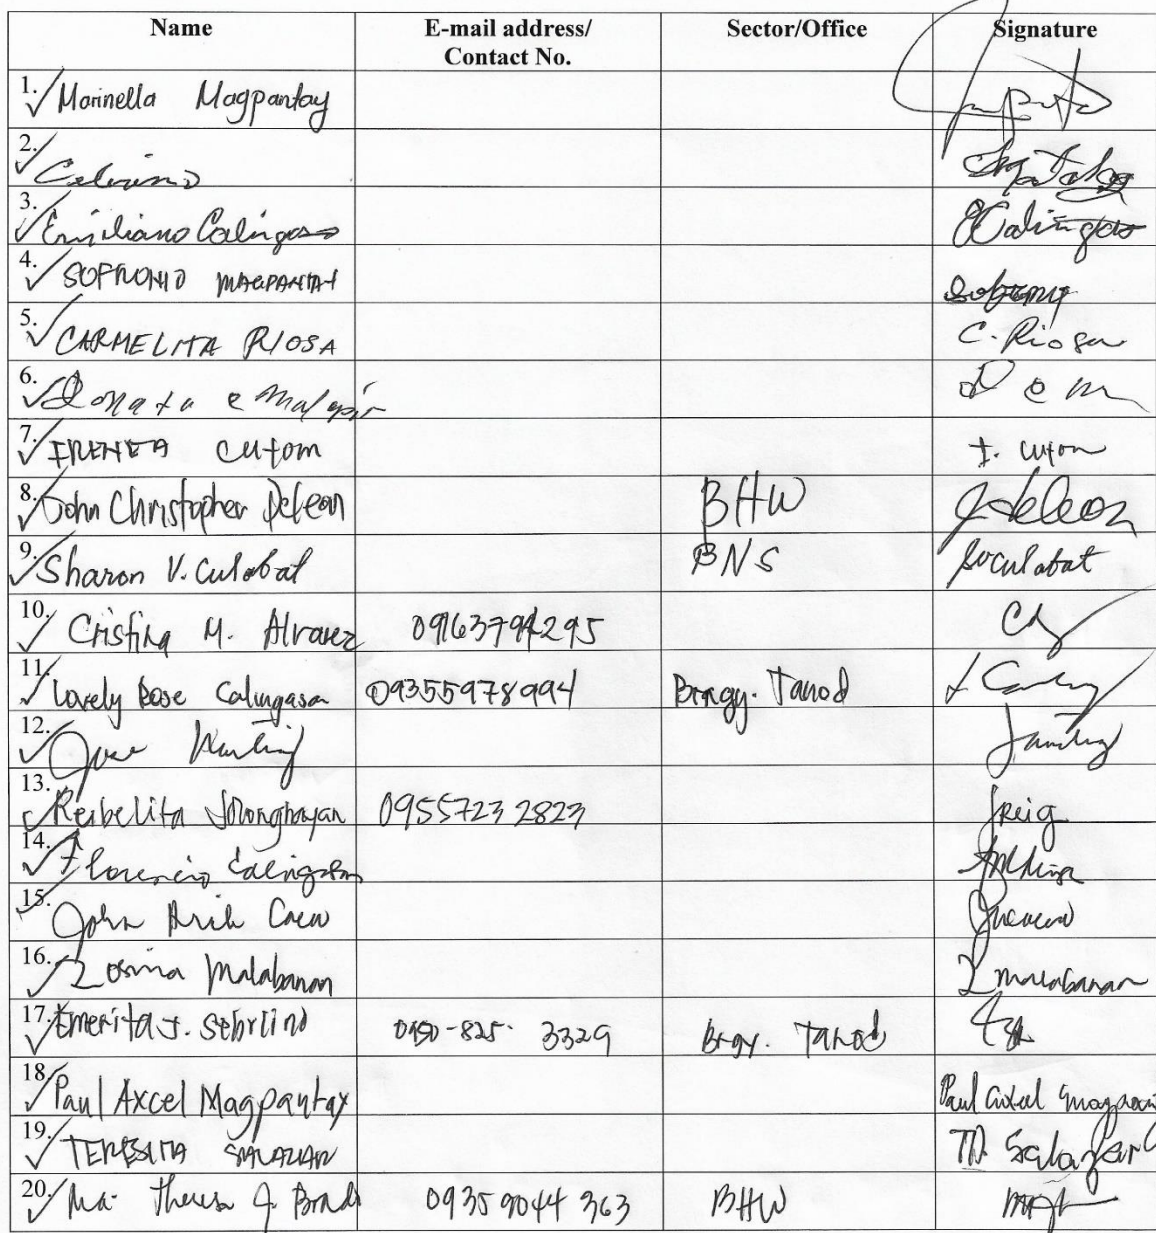 Name E-mail address/ Sector/Office Signature
Contact No.
1. Marinella Magpantay
2. Celerino
3. Emiliano Calingasan E Calingasan
4. SOFRONIO MAGPANTAY
5. CARMELITA RIOSA C. Riosa
6. Donata e D e m
7. IRENEA Cutom I. Cutom
8. John Christopher DeLeon BHW J deleon
9. Sharon V. Culobat BNS
10. Cristina M. Alvarez 09163794295
11. Lovely Rose Calingasan 09355978994 Brngy. Tanod
12.
13. Reibelita 09557232823
14. Florencio Calingasan
15. John
16. Zosima Malabanan Z malabanan
17. Emerita J. 3329 Brgy. Tanod
18. Paul Axcel Magpantay Paul Axcel
19. TERESITA SALAZAR Salazar
20. Ma. Theresa J. 09359044363 BHW